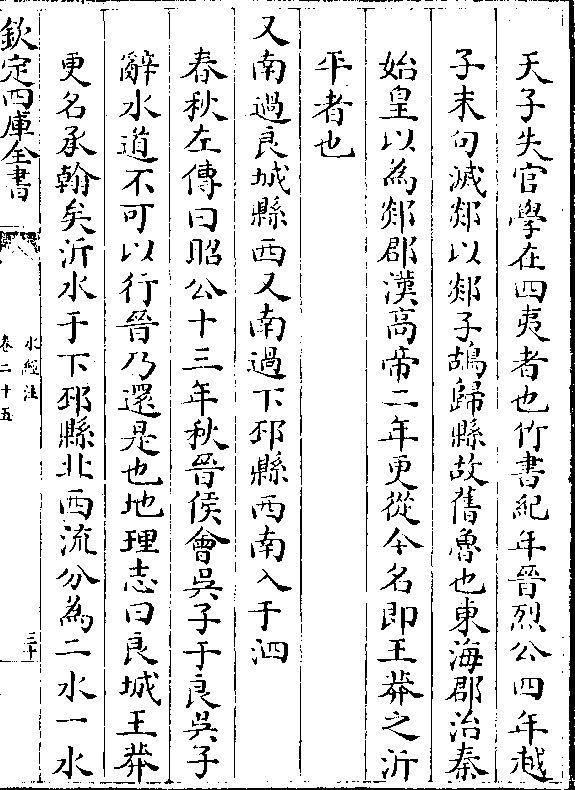 天子失官學在四夷者也竹書紀年晉烈公四年越
子末句滅郯以郯子鴣歸縣故舊魯也東海郡治秦
始皇以為郯郡漢高帝二年更從今名即王莽之沂
平者也
又南過良城縣西又南過下邳縣西南入于泗
春秋左傳曰昭公十三年秋晉侯會吳子于良吳子
辭水道不可以行晉乃還是也地理志曰良城王莽
更名承翰矣沂水于下邳縣北西流分為二水一水
欽定四庫全書
水經注
卷二十五
三十